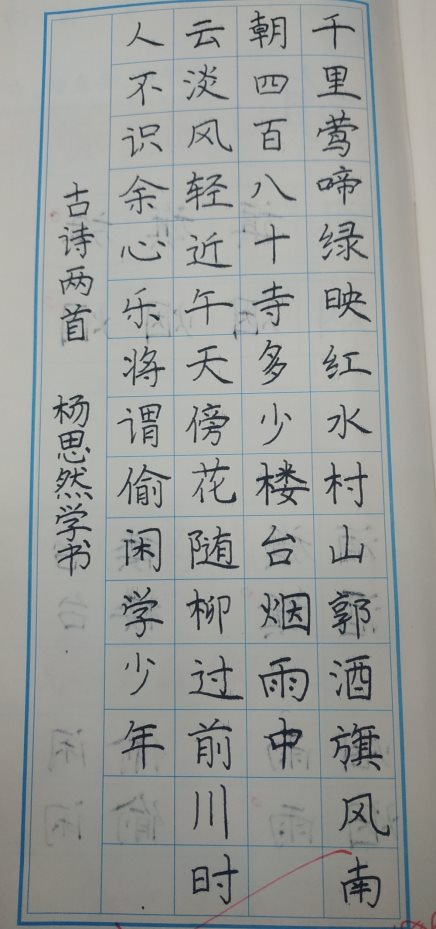 千里莺啼绿映红水村山郭酒旗风南
朝四百八十寺多少楼台烟雨中
云淡风轻近午天傍花随柳过前川时
人不识余心乐将谓偷闲学少年
古诗两首 杨思然学书